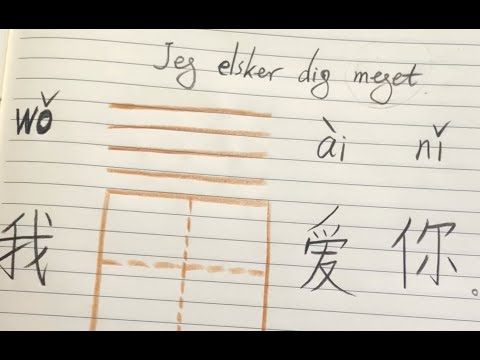 Jeg elsker dig meget.
wǒ ài nǐ
我 爱 你。